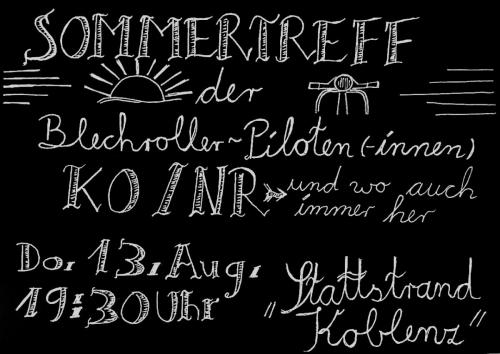 SOMMERTREFF
der
Blechroller~Piloten(-innen)
KO/NR » und wo auch
immer her
Do, 13, Aug,
19:30 Uhr
"Stattstrand
Koblenz"